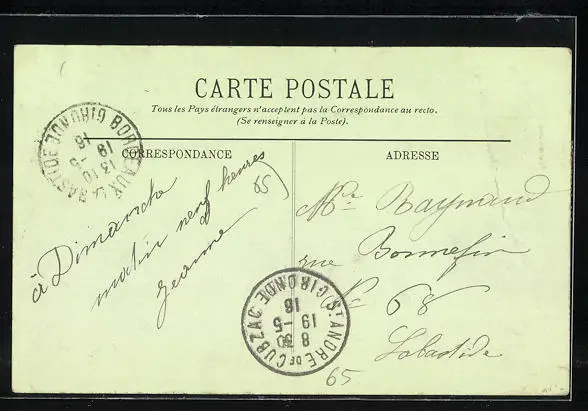 CARTE POSTALE
Tous les Pays étrangers n'acceptent pas la Correspondance au recto.
(Se renseigner à la Poste).
CORRESPONDANCE
ADRESSE
à Dimanche
matin neuf heures
Jeanne
65
Mr Raymond
rue Bonnefin
No 68
Labastide
BORDEAUX LA BASTIDE GIRONDE
13 10
19 -5
16
ST ANDRE DE CUBZAC (GIRONDE)
8 30
19 -5
16
65